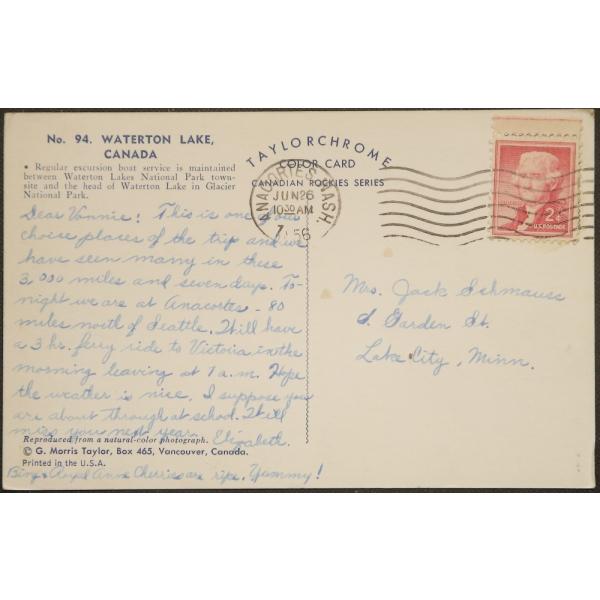 No. 94. WATERTON LAKE,
CANADA
• Regular excursion boat service is maintained
between Waterton Lakes National Park town-
site and the head of Waterton Lake in Glacier
National Park.
TAYLORCHROME
COLOR CARD
CANADIAN ROCKIES SERIES
ANACORTES WASH.
JUN 26
10 30 AM
1956
2¢
U.S. POSTAGE
Dear Vonnie: This is one of our
choise places of the trip and we
have seen many in these
3,000 miles and seven days. To-
night we are at Anacortes - 80
miles north of Seattle. Will have
a 3 hr. ferry ride to Victoria in the
morning leaving at 9 a.m. Hope
the weather is nice. I suppose you
are about through at school. Will
miss you next year. Elizabeth.
Mrs. Jack Schmauss
S. Garden St.
Lake City, Minn.
Reproduced from a natural-color photograph.
© G. Morris Taylor, Box 465, Vancouver, Canada.
Printed in the U.S.A.
Bing & Royal Anne Cherries are ripe. Yummy!